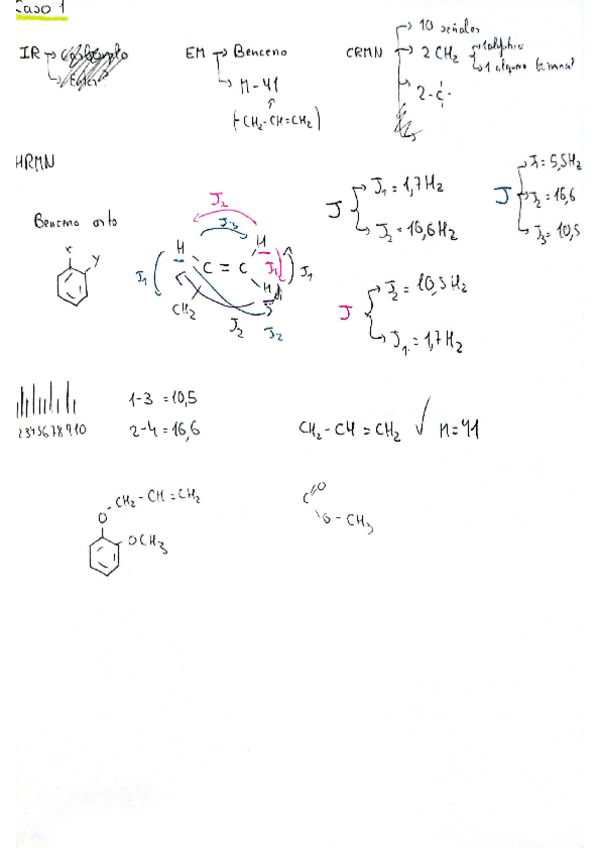 Caso 1
IR
EM → Benceno
→ M-41
(-CH₂-CH=CH₂)
CRMN → 10 señales
→ 2 CH₂ → 1 alifático
→ 1 alqueno terminal
→ 2-C-
HRMN
Benceno orto
X
Y
J₂
J₃
H
H
J₁
C = C
J₁
J₁
H
CH₂
J₂
J₂
J → J₁ = 1,7 Hz
→ J₂ = 16,6 Hz
J → J₁ = 5,5 Hz
→ J₂ = 16,6
→ J₃ = 10,5
J → J₂ = 10,5 Hz
→ J₁ = 1,7 Hz
2345678910
1-3 = 10,5
2-4 = 16,6
CH₂-CH=CH₂ ✓ M=41
O-CH₂-CH=CH₂
OCH₃
C=O
O-CH₃